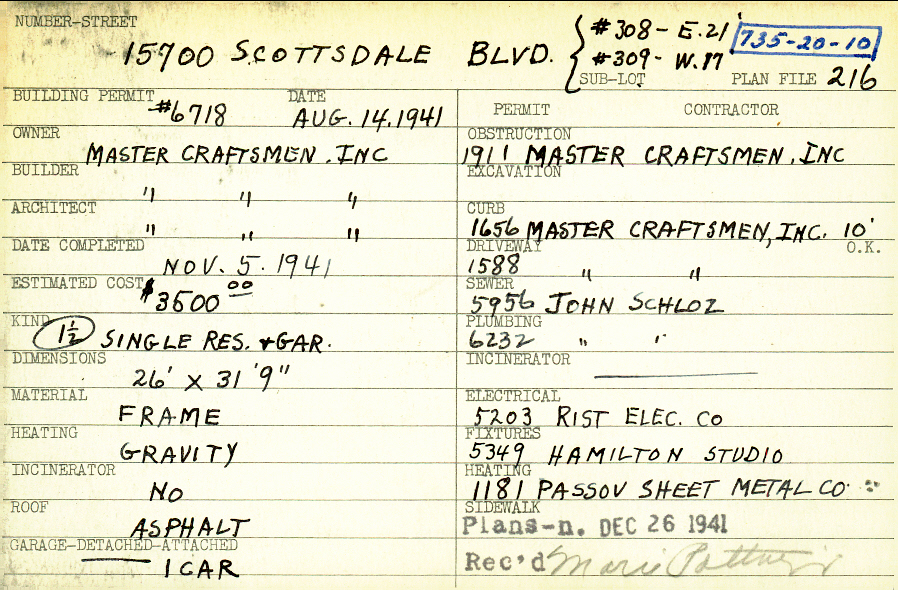 NUMBER-STREET
15700 SCOTTSDALE BLVD. #308 - E. 21' 735-20-10
#309 - W. 17
SUB-LOT PLAN FILE 216
BUILDING PERMIT #6718 DATE AUG. 14. 1941
OWNER
MASTER CRAFTSMEN. INC
BUILDER
" " "
ARCHITECT
" " "
DATE COMPLETED
NOV. 5. 1941
ESTIMATED COST $3500 00
KIND
1½ SINGLE RES. & GAR.
DIMENSIONS
26' X 31' 9"
MATERIAL
FRAME
HEATING
GRAVITY
INCINERATOR
NO
ROOF
ASPHALT
GARAGE-DETACHED-ATTACHED
1 CAR
PERMIT CONTRACTOR
OBSTRUCTION
1911 MASTER CRAFTSMEN. INC
EXCAVATION
CURB
1656 MASTER CRAFTSMEN, INC. 10'
DRIVEWAY O.K.
1588 " "
SEWER
5956 JOHN SCHLOZ
PLUMBING
6232 " "
INCINERATOR
ELECTRICAL
5203 RIST ELEC. CO
FIXTURES
5349 HAMILTON STUDIO
HEATING
1181 PASSOV SHEET METAL CO
SIDEWALK
Plans-n. DEC 26 1941
Rec'd Marie